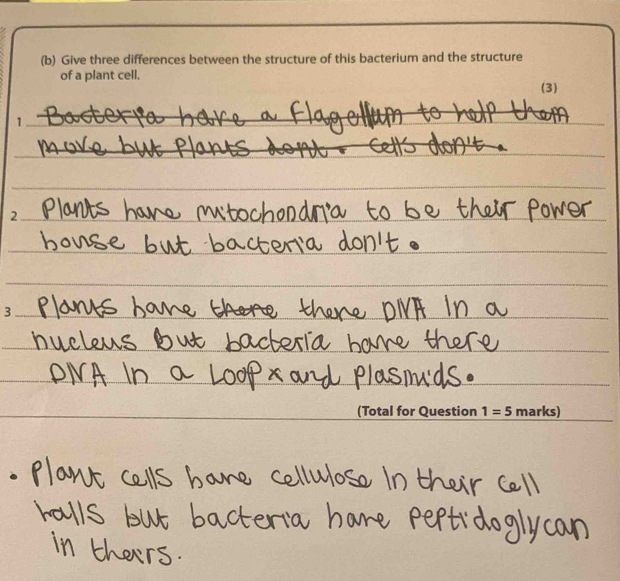 (b) Give three differences between the structure of this bacterium and the structure
of a plant cell.
(3)
1 Bacteria have a flagellum to help them
move but Plants dont. cells don't.
2 Plants have mitochondria to be their power
house but bacteria don't.
3 Plants have there there DNA In a
nucleus but bacteria have there
DNA In a Loop x and plasmids.
(Total for Question 1 = 5 marks)
• Plant cells have cellulose In their cell
walls but bacteria have peptidoglycan
in theirs.